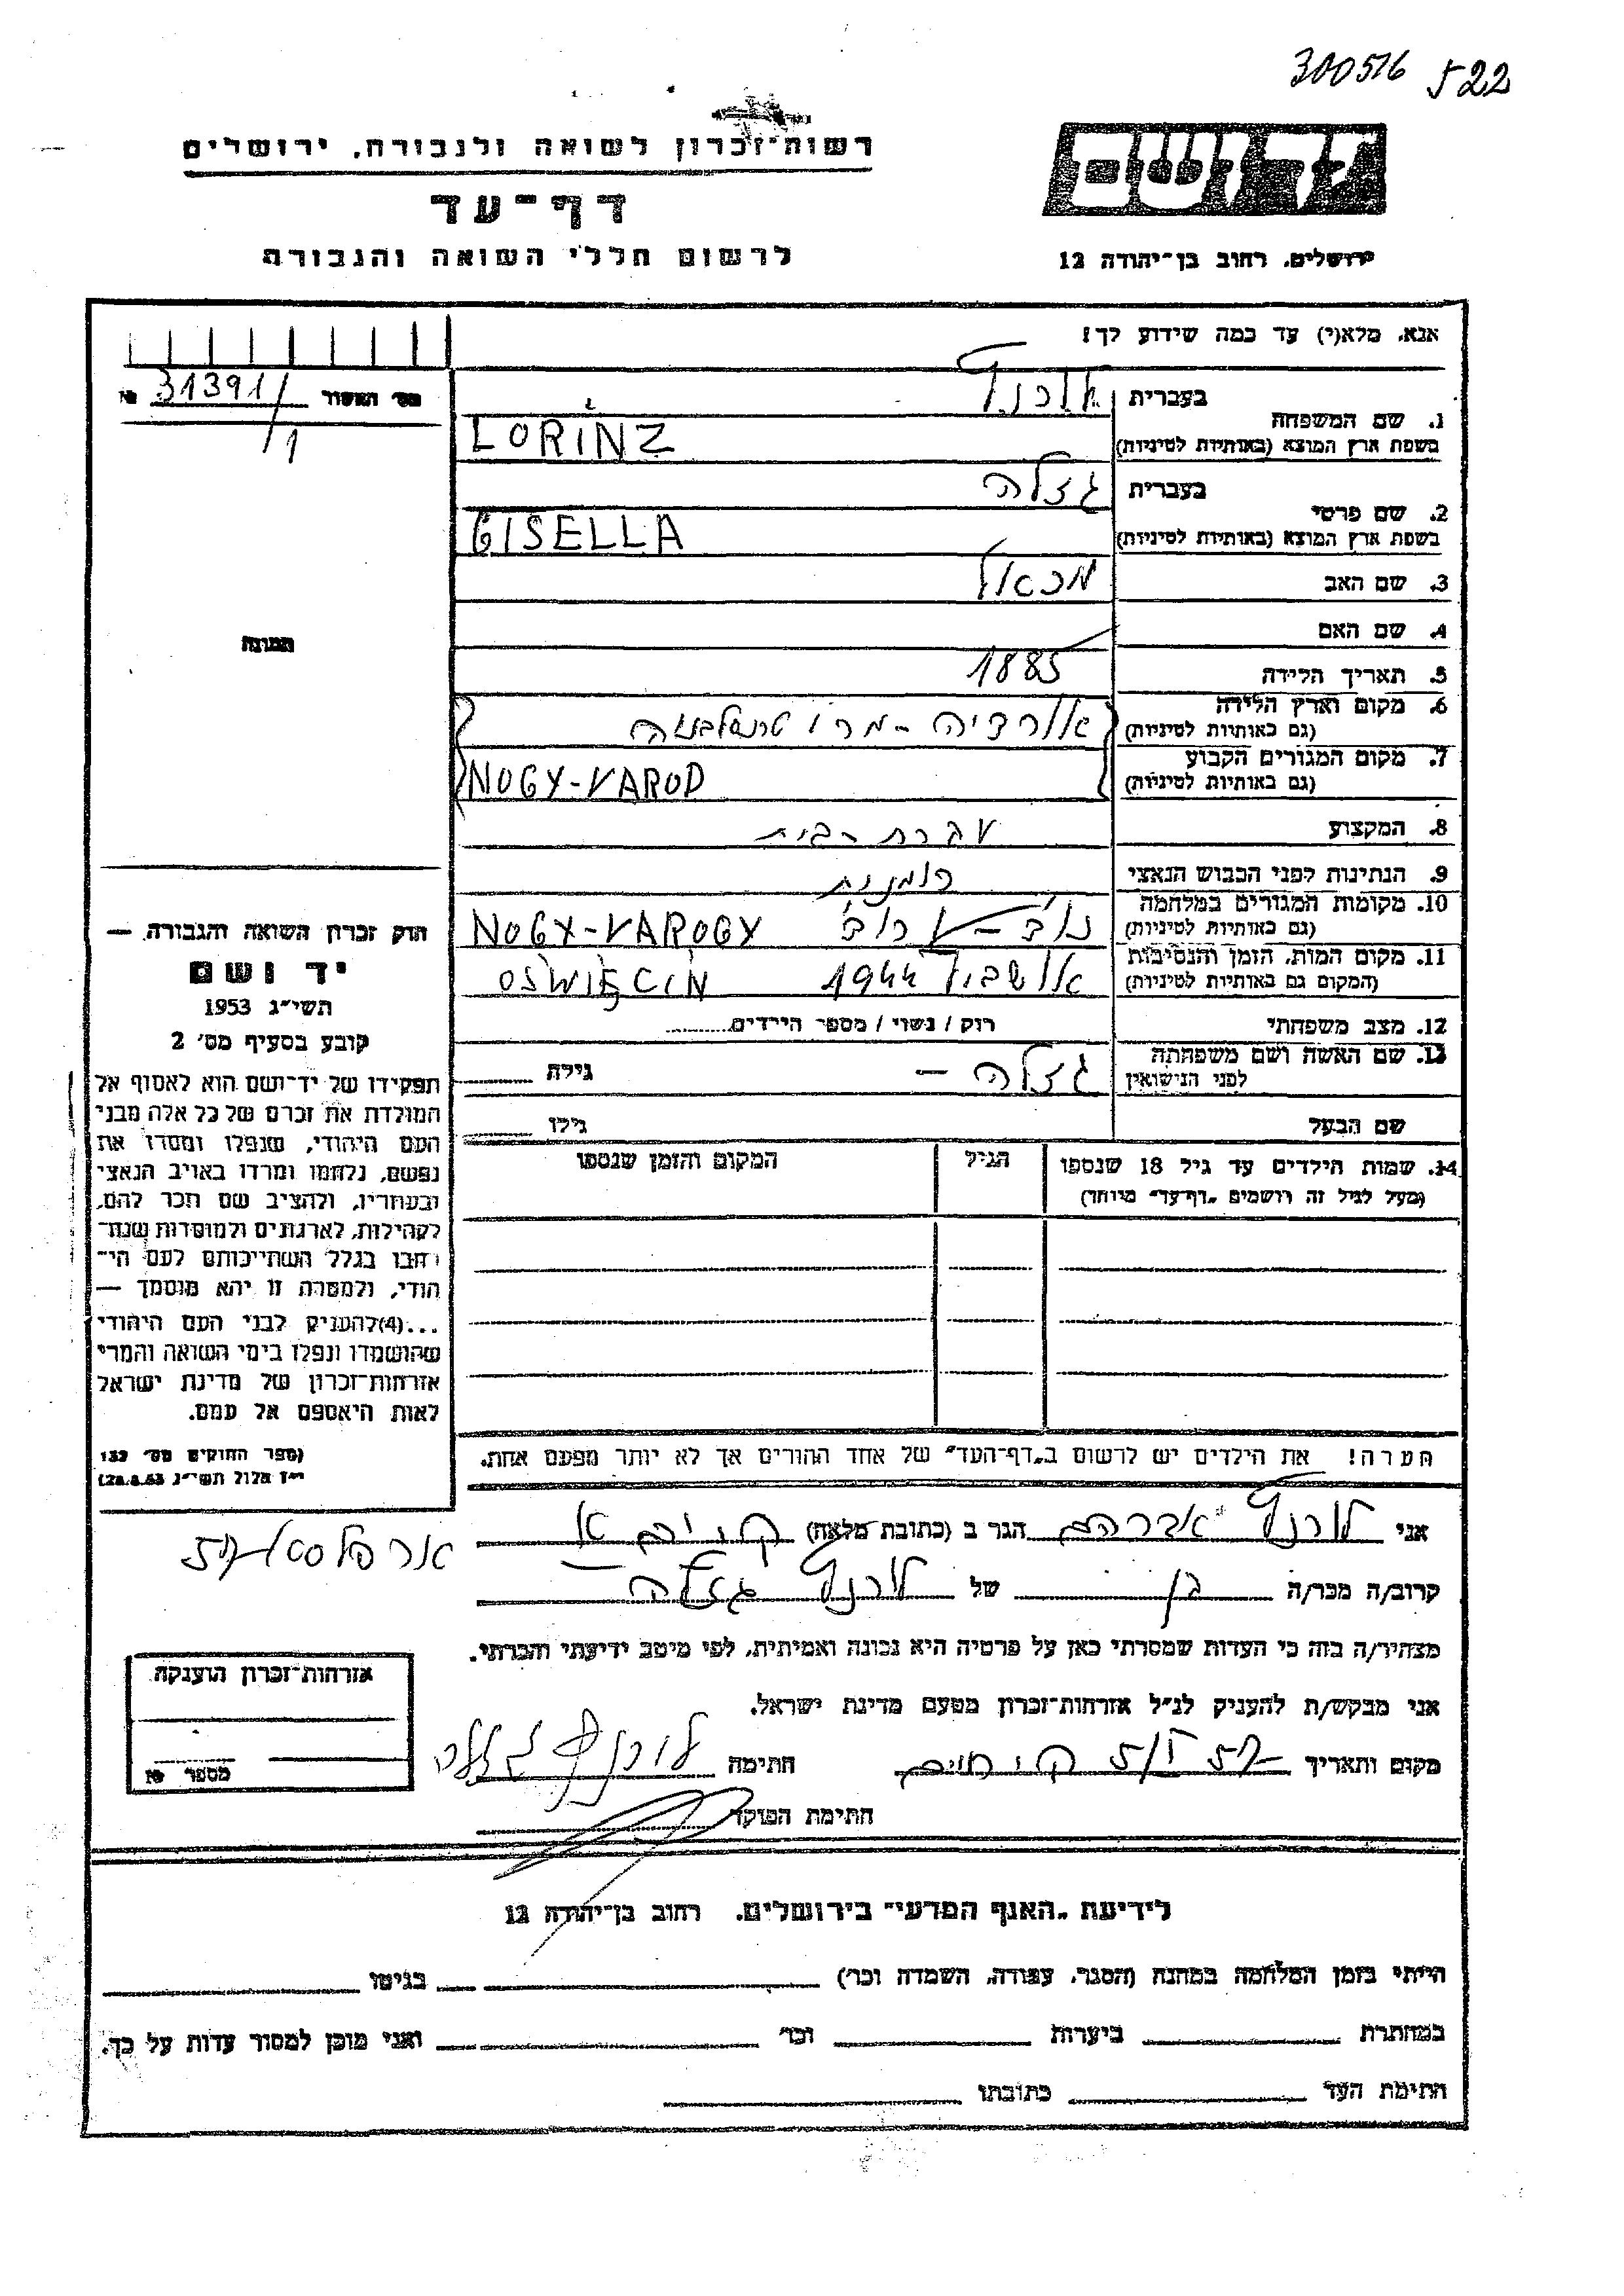 300516 522
רשות־זכרון לשואה ולגבורה, ירושלים
דף־עד
לרשום חללי השואה והגבורה
ירושלים, רחוב בן־יהודה 12
אנא, מלא(י) עד כמה שידוע לך!
31391/1
1. שם המשפחה
בעברית
בשפת ארץ המוצא (באותיות לטיניות)
LORINZ
2. שם פרטי
בעברית גזלה
בשפת ארץ המוצא (באותיות לטיניות)
GISELLA
3. שם האב
4. שם האם
5. תאריך הלידה 1885
6. מקום וארץ הלידה
(גם באותיות לטיניות)
7. מקום המגורים הקבוע
(גם באותיות לטיניות) NOGY-VAROD
8. המקצוע עקרת-בית
9. הנתינות לפני הכבוש הנאצי רומנית
10. מקומות המגורים במלחמה
(גם באותיות לטיניות) NOGY-VAROGY
11. מקום המות, הזמן והנסיבות
(המקום גם באותיות לטיניות) 1944 OSWIĘCIM
12. מצב משפחתי רוק / נשוי / מספר הילדים
13. שם האשה ושם משפחתה
לפני הנישואין גזלה – גילה
שם הבעל גילו
14. שמות הילדים עד גיל 18 שנספו הגיל המקום והזמן שנספו
(מעל לגיל זה רושמים "דף־עד" מיוחד)
הערה! את הילדים יש לרשום ב"דף־העד" של אחד ההורים אך לא יותר מפעם אחת.
תמונה
חוק זכרון השואה והגבורה —
יד ושם
תשי"ג 1953
קובע בסעיף מס' 2
תפקידו של יד־ושם הוא לאסוף אל
המולדת את זכרם של כל אלה מבני
העם היהודי, שנפלו ומסרו את
נפשם, נלחמו ומרדו באויב הנאצי
ובעוזריו, ולהציב שם וזכר להם,
לקהילות, לארגונים ולמוסדות שנח־
רבו בגלל השתייכותם לעם הי־
הודי, ולמטרה זו יהא מוסמך —
...(4)להעניק לבני העם היהודי
שהושמדו ונפלו בימי השואה והמרי
אזרחות־זכרון של מדינת ישראל
לאות היאספם אל עמם.
(ספר החוקים מס' 132
י"ז אלול תשי"ג 28.8.53)
אני לורנץ אברהם הגר ב (כתובת מלאה)
קרוב/ה מכר/ה בן של לורנץ גזלה
מצהיר/ה בזה כי העדות שמסרתי כאן על פרטיה היא נכונה ואמיתית, לפי מיטב ידיעתי והכרתי.
אני מבקש/ת להעניק לנ"ל אזרחות־זכרון מטעם מדינת ישראל.
מקום ותאריך חתימה
חתימת הפוקד
אזרחות־זכרון הוענקה
מספר
לידיעת "האגף המדעי" בירושלים, רחוב בן־יהודה 12
הייתי בזמן המלחמה במחנה (הסגר, עבודה, השמדה וכו') בגיטו
במחתרת ביערות וכו' ואני מוכן למסור עדות על כך.
חתימת העד כתובתו